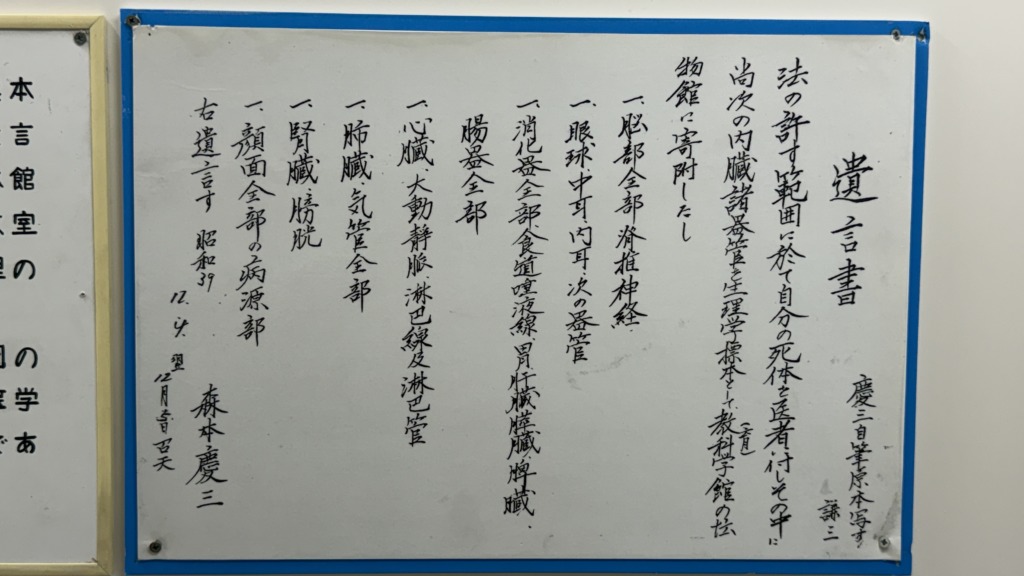 遺言書
慶三自筆原本写す
謙三
法の許す範囲に於て自分の死体を医者に付しその中に
尚次の内臓諸器管を生理学標本として教科学館の
(育)
物館に寄附したし
一、脳部全部、脊椎神経
一、眼球、中耳、内耳、次の器管
一、消化器全部、食道、唾液線、胃、肝臓、膵臓、脾臓、
腸器全部
一、心臓、大動静脈、淋巴線及淋巴管
一、肺臓、気管全部
一、腎臓、膀胱
一、顔面全部の病源部
右遺言す 昭和39
12.4. 翌
12月5日召天
森本慶三
本
言
館
室
の
の
学
あ